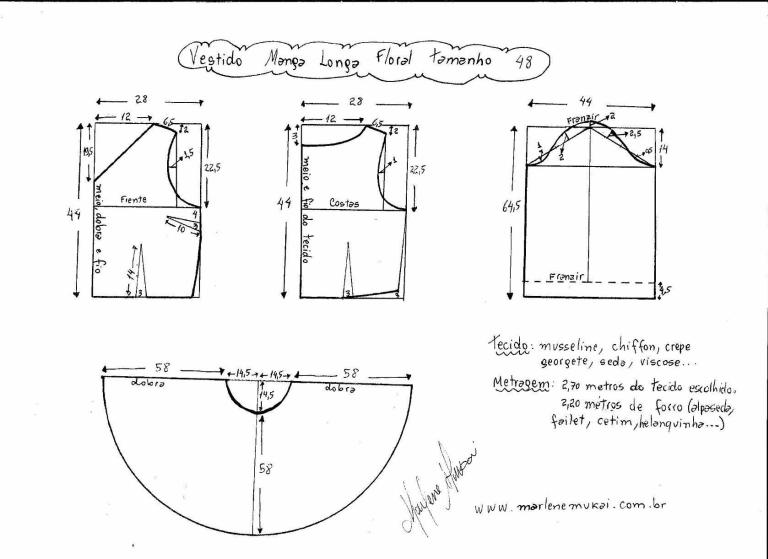 Vestido Manga Longa Floral tamanho 48
28
12
6,5
2
18,5
1,5
22,5
44
Frente
meio, dobra e fio
4
10
14
3
28
12
6,5
2
3
1
22,5
44
Costas
meio e fio do tecido
3
44
Franzir
2
2,5
1
2
14
64,5
Franzir
4,5
58
14,5
14,5
58
dobra
dobra
14,5
58
Tecido: musseline, chiffon, crepe
georgete, seda, viscose...
Metragem: 2,70 metros do tecido escolhido.
2,20 metros de forro (alpaseda,
failet, cetim, helanquinha...)
Marlene Mukai
www.marlenemukai.com.br